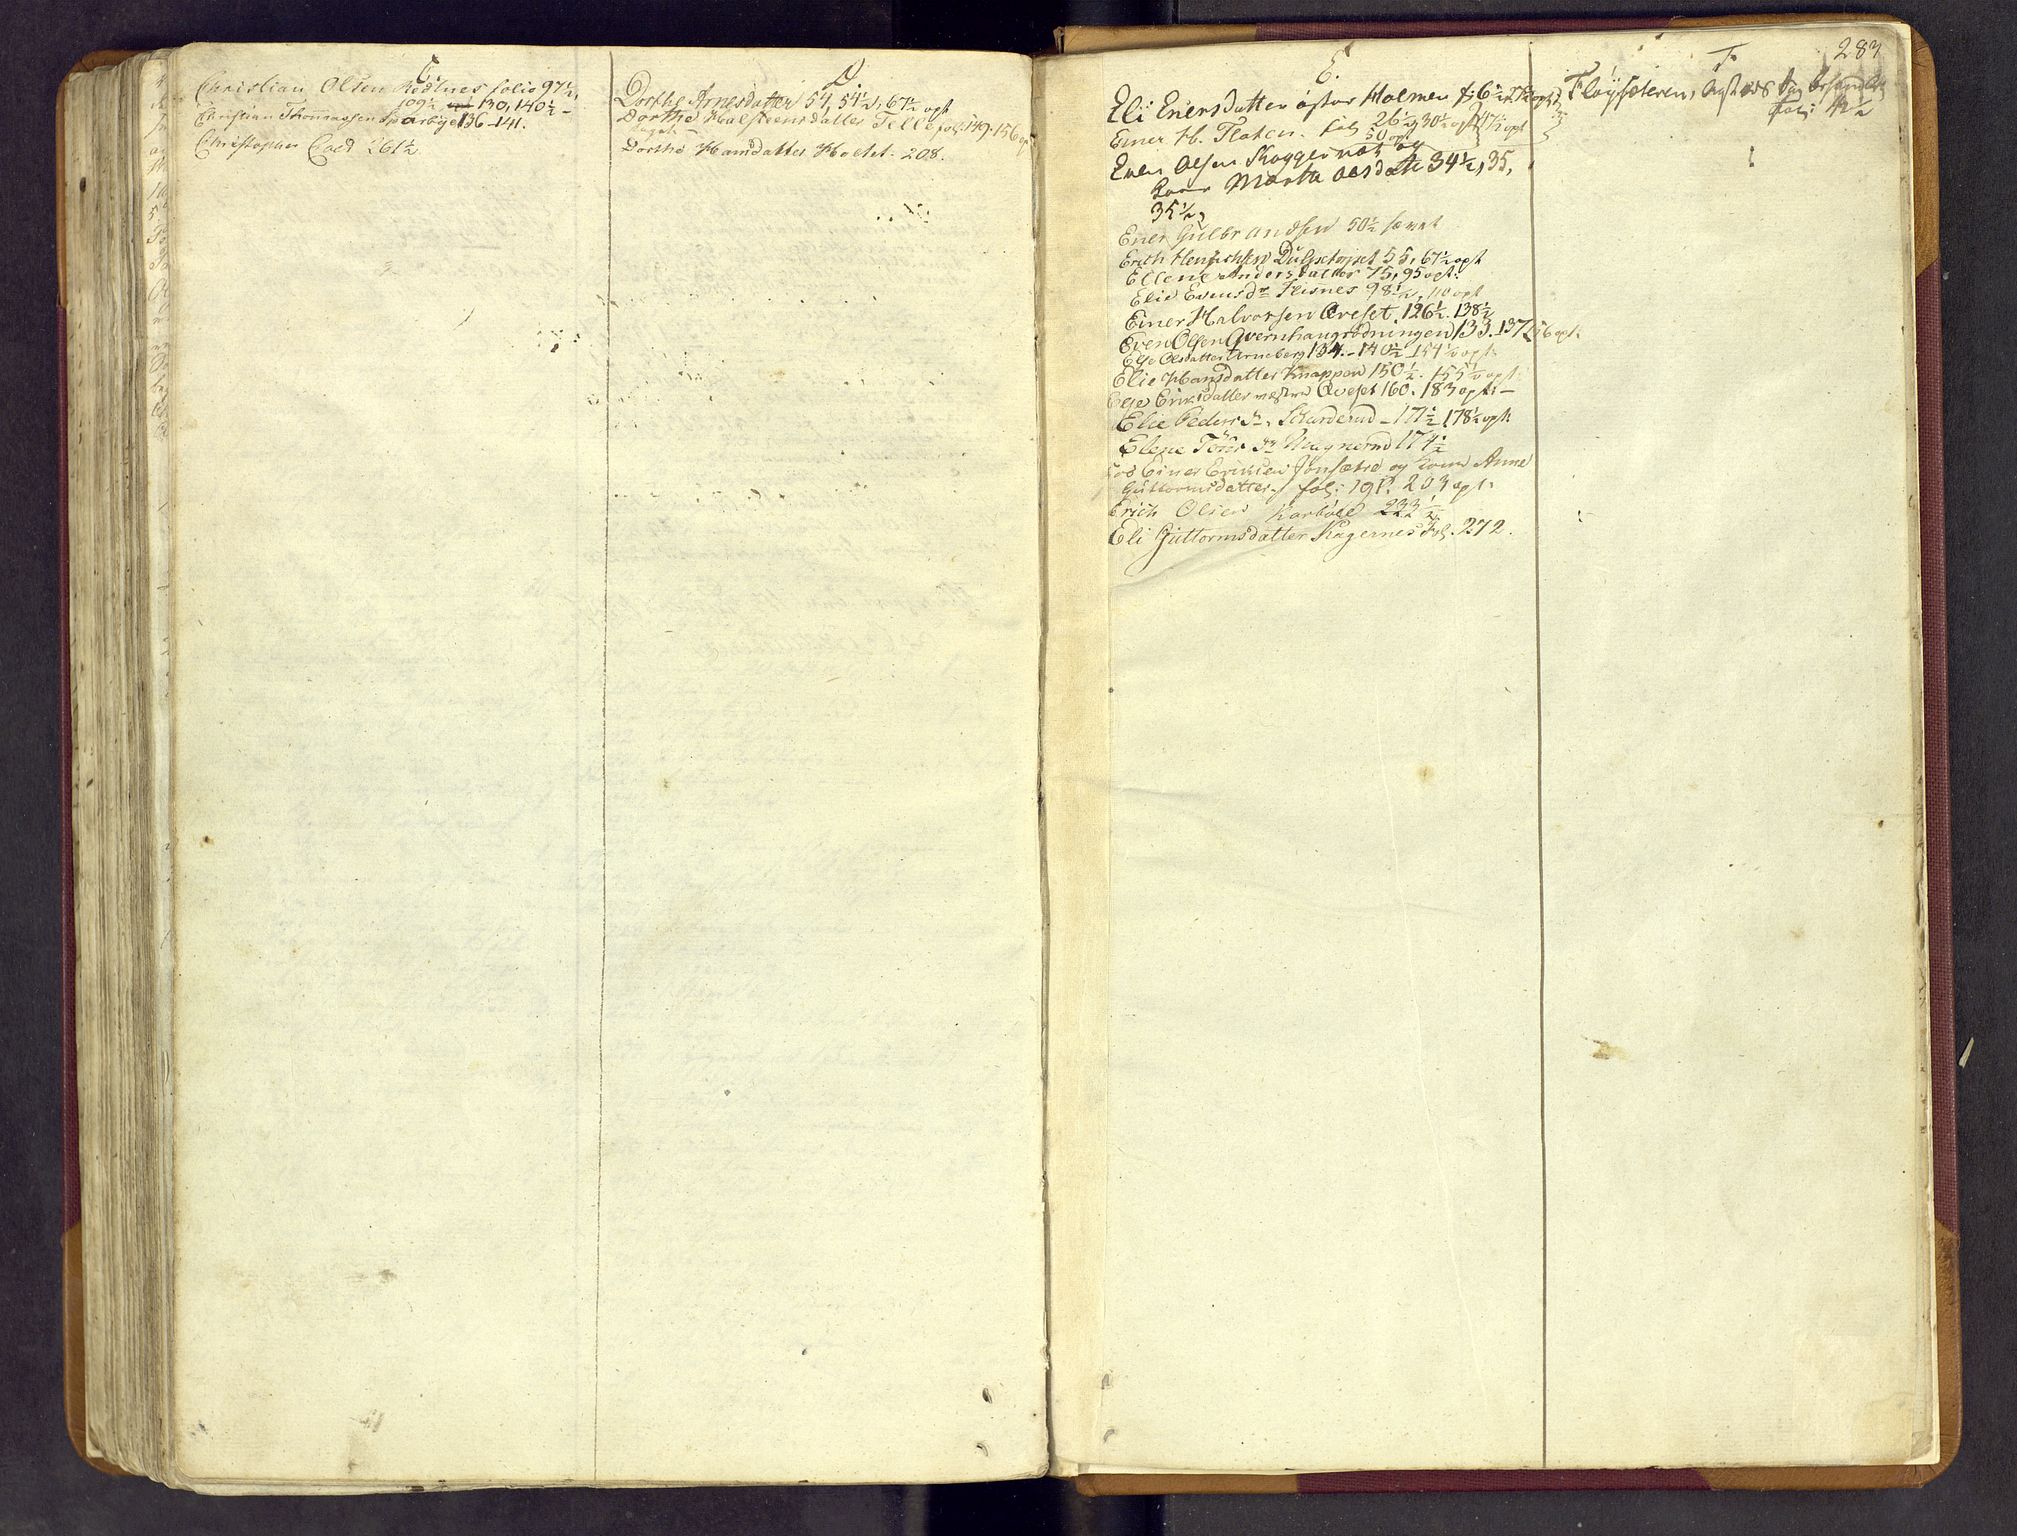 C.
Christian Olsen Rédlnes folio 97½,
109½ 130, 140½ –
Christian Thomassen Sparbye 136–141.
Christopher Coed 261½
D.
Dorthe Arnesdatter 54, 54½, 67½ opt
Dorthe Halstensdatter Telle fol: 149. 156 op
Dorthe Hansdatter Holtet. 208.
283
E.
Eli Enersdatter øster Holmen f: 6½, 27½ opt
Ener H. Floten. fol 26½, 30½ opt 47½ opt
50 opt
Even Olsen Skoggernæt og
Kone Marta 34½, 35,
35½,
Ener Gulbrandsen 50½
Erich Henrichsen 55, 67½ opt
Ellene Andersdatter 75, 95 opt:
Elie Evensdr Flisnes 98½, 110 opt
Einer Halvorsen Qveset, 126½. 138½
Even Olsen Qvernhaugrødningen 133. 137. 156 opt.
Else Olsdatter Arneberg 134. – 140½ 154½ opt:
Elie Hansdatter Knappen 150½. 155½ opt:
Else Eriksdatter vestre Qveset 160. 183 opt: –
Elie Peders Dr. Skarderud – 171½ 178½ opt:
Elene Tørres Dr Magnerud 174½
Einer Eriksen Jonsætre og Kone Anne
Guttormsdatter – fol: 191. 203 opt:
Erich Olsen Karbøle 233½
Eli Guttormsdatter Kagernes Fol. 272.
F.
Fløysæteren,
Fol: 11½